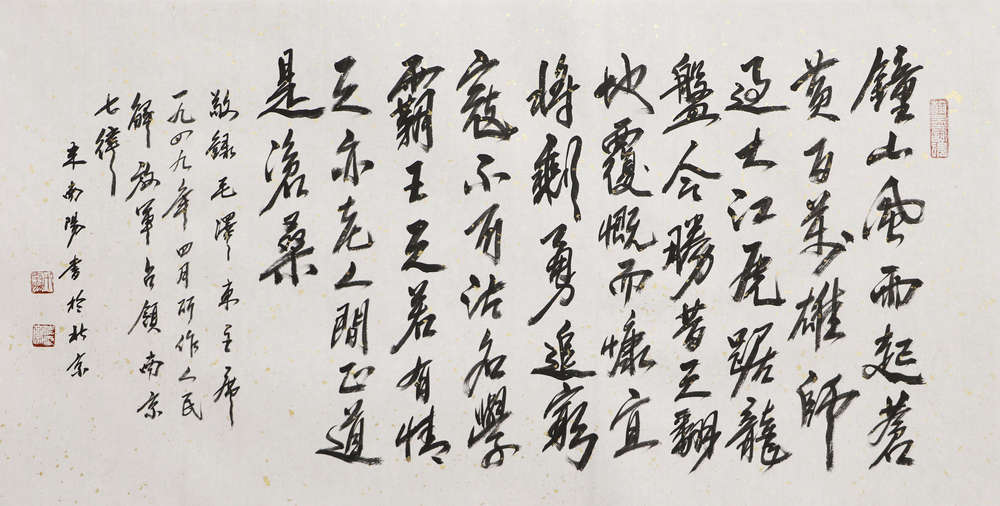 鐘山風雨起蒼
黄百萬雄師
過大江虎踞龍
盤今勝昔天翻
地覆慨而慷宜
將剩勇追窮
寇不可沽名學
霸王天若有情
天亦老人間正道
是滄桑
敬録毛澤東主席
一九四九年四月所作人民
解放軍占領南京
七律
米南陽書於北京